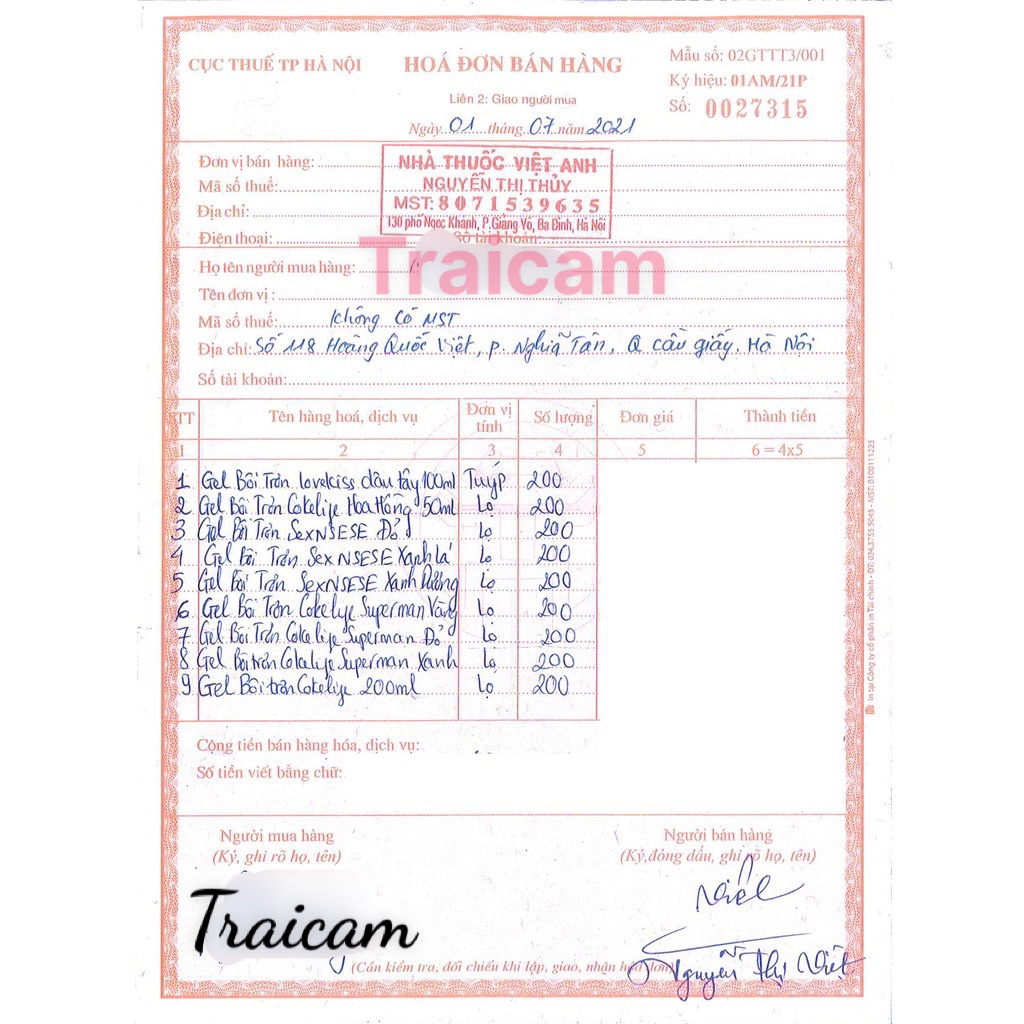 CỤC THUẾ TP HÀ NỘI
HOÁ ĐƠN BÁN HÀNG
Mẫu số: 02GTTT3/001
Ký hiệu: 01AM/21P
Số: 0027315
Liên 2: Giao người mua
Ngày 01 tháng 07 năm 2021
Đơn vị bán hàng:
NHÀ THUỐC VIỆT ANH
NGUYỄN THỊ THỦY
Mã số thuế:
MST: 8071539635
Địa chỉ:
130 phố Ngọc Khánh, P.Giảng Võ, Ba Đình, Hà Nội
Điện thoại: Số tài khoản:
Traicam
Họ tên người mua hàng:
Tên đơn vị :
Mã số thuế: Không có MST
Địa chỉ: Số 118 Hoàng Quốc Việt, P. Nghĩa Tân, Q cầu giấy, Hà Nội
Số tài khoản:
STT Tên hàng hoá, dịch vụ Đơn vị tính Số lượng Đơn giá Thành tiền
1 2 3 4 5 6 = 4x5
1 Gel Bôi Trơn lovekiss dâu tây 100ml Tuýp 200
2 Gel Bôi Trơn Cokelife Hoa Hồng 50ml Lọ 200
3 Gel Bôi Trơn SexNSESE Đỏ Lọ 200
4 Gel Bôi Trơn SexNSESE Xanh Lá Lọ 200
5 Gel Bôi Trơn SexNSESE Xanh Dương Lọ 200
6 Gel Bôi Trơn Cokelife Superman Vàng Lọ 200
7 Gel Bôi Trơn Cokelife Superman Đỏ Lọ 200
8 Gel Bôi trơn Cokelife Superman Xanh Lọ 200
9 Gel Bôi trơn Cokelife 200ml Lọ 200
Cộng tiền bán hàng hóa, dịch vụ:
Số tiền viết bằng chữ:
Người mua hàng
(Ký, ghi rõ họ, tên)
Người bán hàng
(Ký,đóng dấu, ghi rõ họ, tên)
Việt
Traicam
(Cần kiểm tra, đối chiếu khi lập, giao, nhận hoá đơn)
Nguyễn Thị Việt
In tại Công ty cổ phần in Tài chính - ĐT: 024.3755 5045 - MST: 0100111225